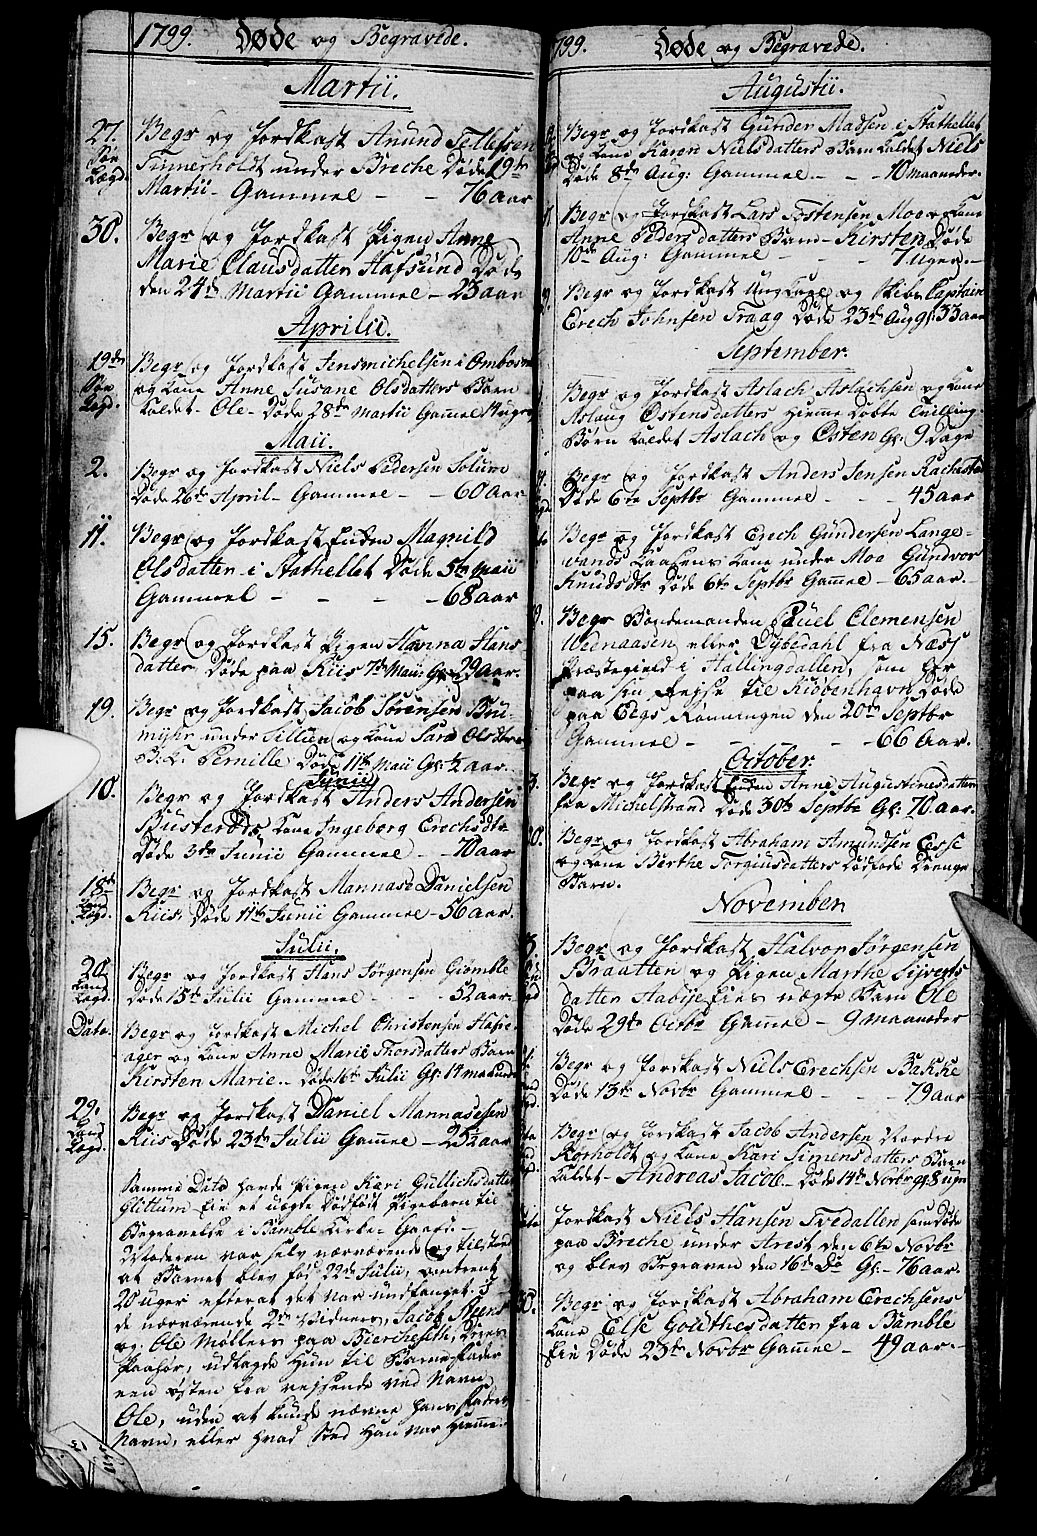 1799. Døde og Begravede.
Martii.
27. Begr og Jordkast Anund Tellefsen
Søe Finnerholdt under Breche Døde 19de
Lægd. Martii - Gammel - - 76 aar
30. Begr og Jordkast Pigen Anne
Marie Clausdatter Hafsund Døde
den 24de Martii Gammel - 23 aar
Aprilii.
19de Begr og Jordkast Jens Michelsen i
Søe og Kone Anne Susane Olsdatters Barn
Lægd. kaldet - Ole - Døde 28de Martii Gammel
Maii.
2. Begr og Jordkast Niels Pedersen Solum
Døde 26de April - Gammel - - 60 aar
11. Begr og Jordkast Enken Magnild
Olsdatter i Stathellet Døde 5te Maii
Gammel - - - - 68 aar
15. Begr og Jordkast Pigen Hanna Hans
datter Døde paa Riis 7de Maii Gl: 29 aar.
19. Begr og Jordkast Jacob Sørensen Bru-
myhr under Tillien og Kone Sara Olsdtrs
B. K. Pernille Døde 11te Maii Gl: 1/2 aar.
Junii
10. Begr og Jordkast Anders Andersen
Kone Ingeborg Erechsdtr
Døde 3de Junii Gammel - 70 aar
18de Begr og Jordkast Mannase Danielsen
Land Riis. Døde 11te Junii Gammel - 56 aar.
Lægd.
Julii.
20 Begr og Jordkast Hans Jørgensen Giømble
Land Døde 15te Julii Gammel - - 52 aar.
Lægd.
Dato. Begr og Jordkast Michel Christensen Hafse-
ager og Kone Anne Marie Thorsdatters Barn
Kirsten Marie - Døde 16te Julii Gl: 14
29. Begr og Jordkast Daniel Mannasesen
Land Riis Døde 23de Julii Gamel - 25 1/2 aar
Lægd.
Samme Dito havde Pigen Kari Gullichsdatter
Glittum sin et uægte Dødfødt Pigebarn til
Begravelse i Bamble Kirke-Gaard -
Moderen var selv nærværende og tilstod
at Barnet blev fød 22de Julii, omtrent
20 uger efter at det var undfanget. I
de nærværende 2de Vidners, Jacob Steens
og Ole Møllers paa Bierchesett, Deres
Paahør, udlagde hun til Barnefader
een østen fra rejsende ved Navn
Ole, uden at kunde nævne hans Faders
Navn, eller hvad Sted Han var hiemme
799. Døde og Begravede.
Augustii.
Begr og Jordkast Gunder Madsen i Stathellet
og Kone Karen Nielsdatters Barn kaldet Niels
Døde 8de Aug: Gammel - - 10 maaneder.
Begr og Jordkast Lars Tostensen Moe og Kone
Anne Pedersdatters Barn - Kirsten Døde
10de Aug: Gammel - - - 7 Uger -
Begr og Jordkast Ung Karl og Skibs Captain
Erech Johnsen Traag Døde 23de Aug gl: 33 aar
September.
Begr og Jordkast Aslach Aslachsen og Kone
Aslaug Østensdatters Hiemme Døbte Tvilling-
Børn kaldet Aslach og Østen Gl: 9 Dage
Begr og Jordkast Anders Jensen
Døde 6te Septbr Gammel - - 45 aar
Begr og Jordkast Erech Gundersen Lange-
Kone under Moe Gunvor
Knudsdtr Døde 6te Septbr Gamel - 65 aar.
Begr Bondemanden Clemensen
eller fra Næss
Præstegield i Hallingdallen, som
paa sin Rejse til Kiøbenhavn Døde
paa Eegs Rønningen den 20de Septbr
Gammel - - - - 66 Aar.
October.
3. Begr og Jordkast Enken Anne Augustinesdatter
fra Michelstrand Døde 30te Septbr Gl: 70 aar.
20. Begr og Jordkast Abraham Amundsen Eese
og Kone Berthe Torgiusdatters dødføde Drenge
Barn.
November
3. Begr og Jordkast Halvor Jørgensen
Braatten og Pigen Marthe Siverts
datter Aabye Eies uægte Barn Ole
Døde 29de Octbr Gamel - 9 maaneder
Begr og Jordkast Niels Erechsen Bakke
Døde 13te Novbr Gammel - - - 79 aar
Begr og Jordkast Jacob Andersen Nordre
Rørholdt og Kone Kari Simensdatters Barn
kaldet - Andreas Jacob - Døde 14de Novbr gl 8 ugr
Jordkast Niels Hansen Tvedallen som døde
paa Breche under Arest den 6te Novbr
og blev Begraven den 16de Do Gl: - 76 aar.
30. Begr og Jordkast Abraham Erechsens
Kone Else Gouthesdatter fra Bamble
Eie Døde 23de Novbr Gamel - 49 aar. -